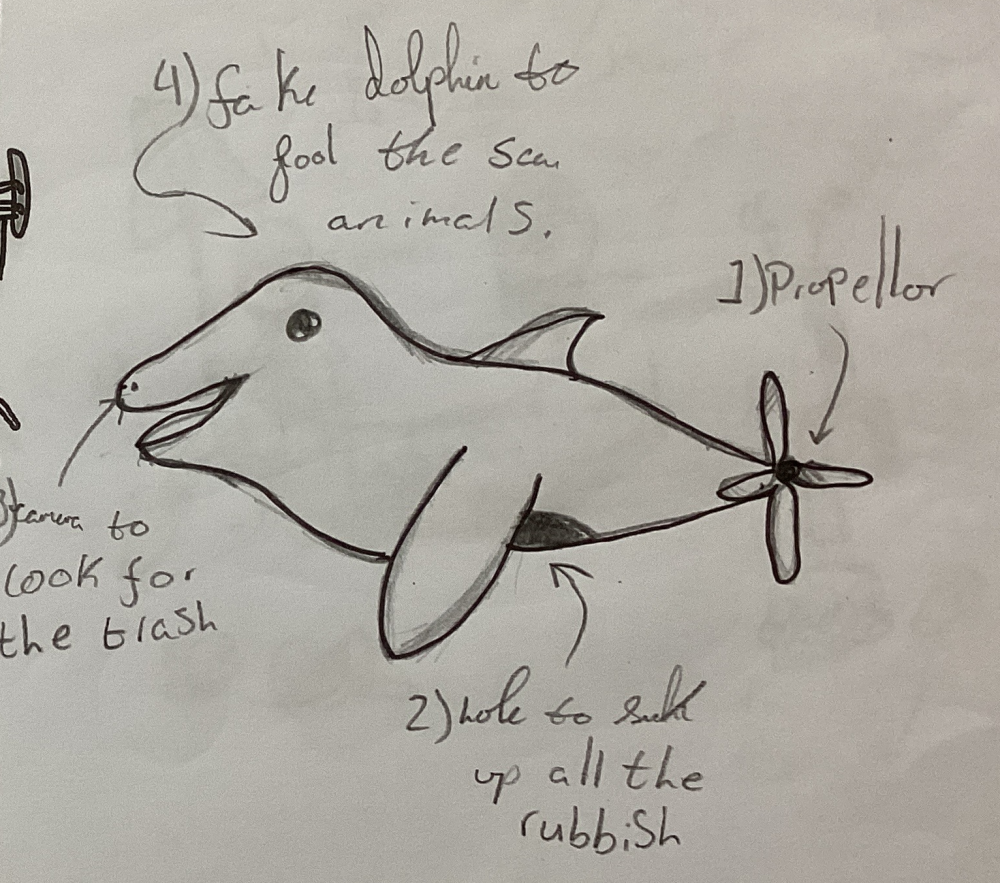 4) fake dolphin to
fool the sea
animals.
1) Propellor
3) camera to
look for
the trash
2) hole to suck
up all the
rubbish